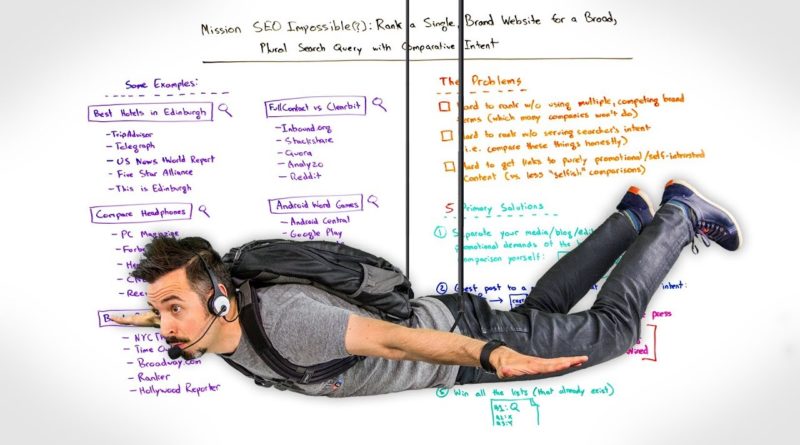 Mission SEO Impossible(?): Rank a Single, Brand Website for a Broad,
Plural Search Query with Comparative Intent
Some Examples:
Best Hotels in Edinburgh
- TripAdvisor
- Telegraph
- US News & World Report
- Five Star Alliance
- This is Edinburgh
Compare Headphones
- PC Magazine
FullContact vs Clearbit
- Inbound.org
- Stackshare
- Quora
- Analyzo
- Reddit
Android Word Games
- Android Central
- Google Play
- NYC
- Time Out
- Broadway.com
- Ranker
- Hollywood Reporter
The Problems
Hard to rank w/o using multiple, competing brand
terms (which many companies won't do)
Hard to rank w/o serving searcher's intent
(i.e. compare these things honestly)
Hard to get links to purely promotional/self-interested
content (vs. less "selfish" comparisons)
5 Primary Solutions
① Separate your media/blog/
promotional demands of the
comparison yourself:
② Guest post to a
intent:
press
⑤ Win all the lists (that already exist)
#1: Q
#2: X
#3: Y